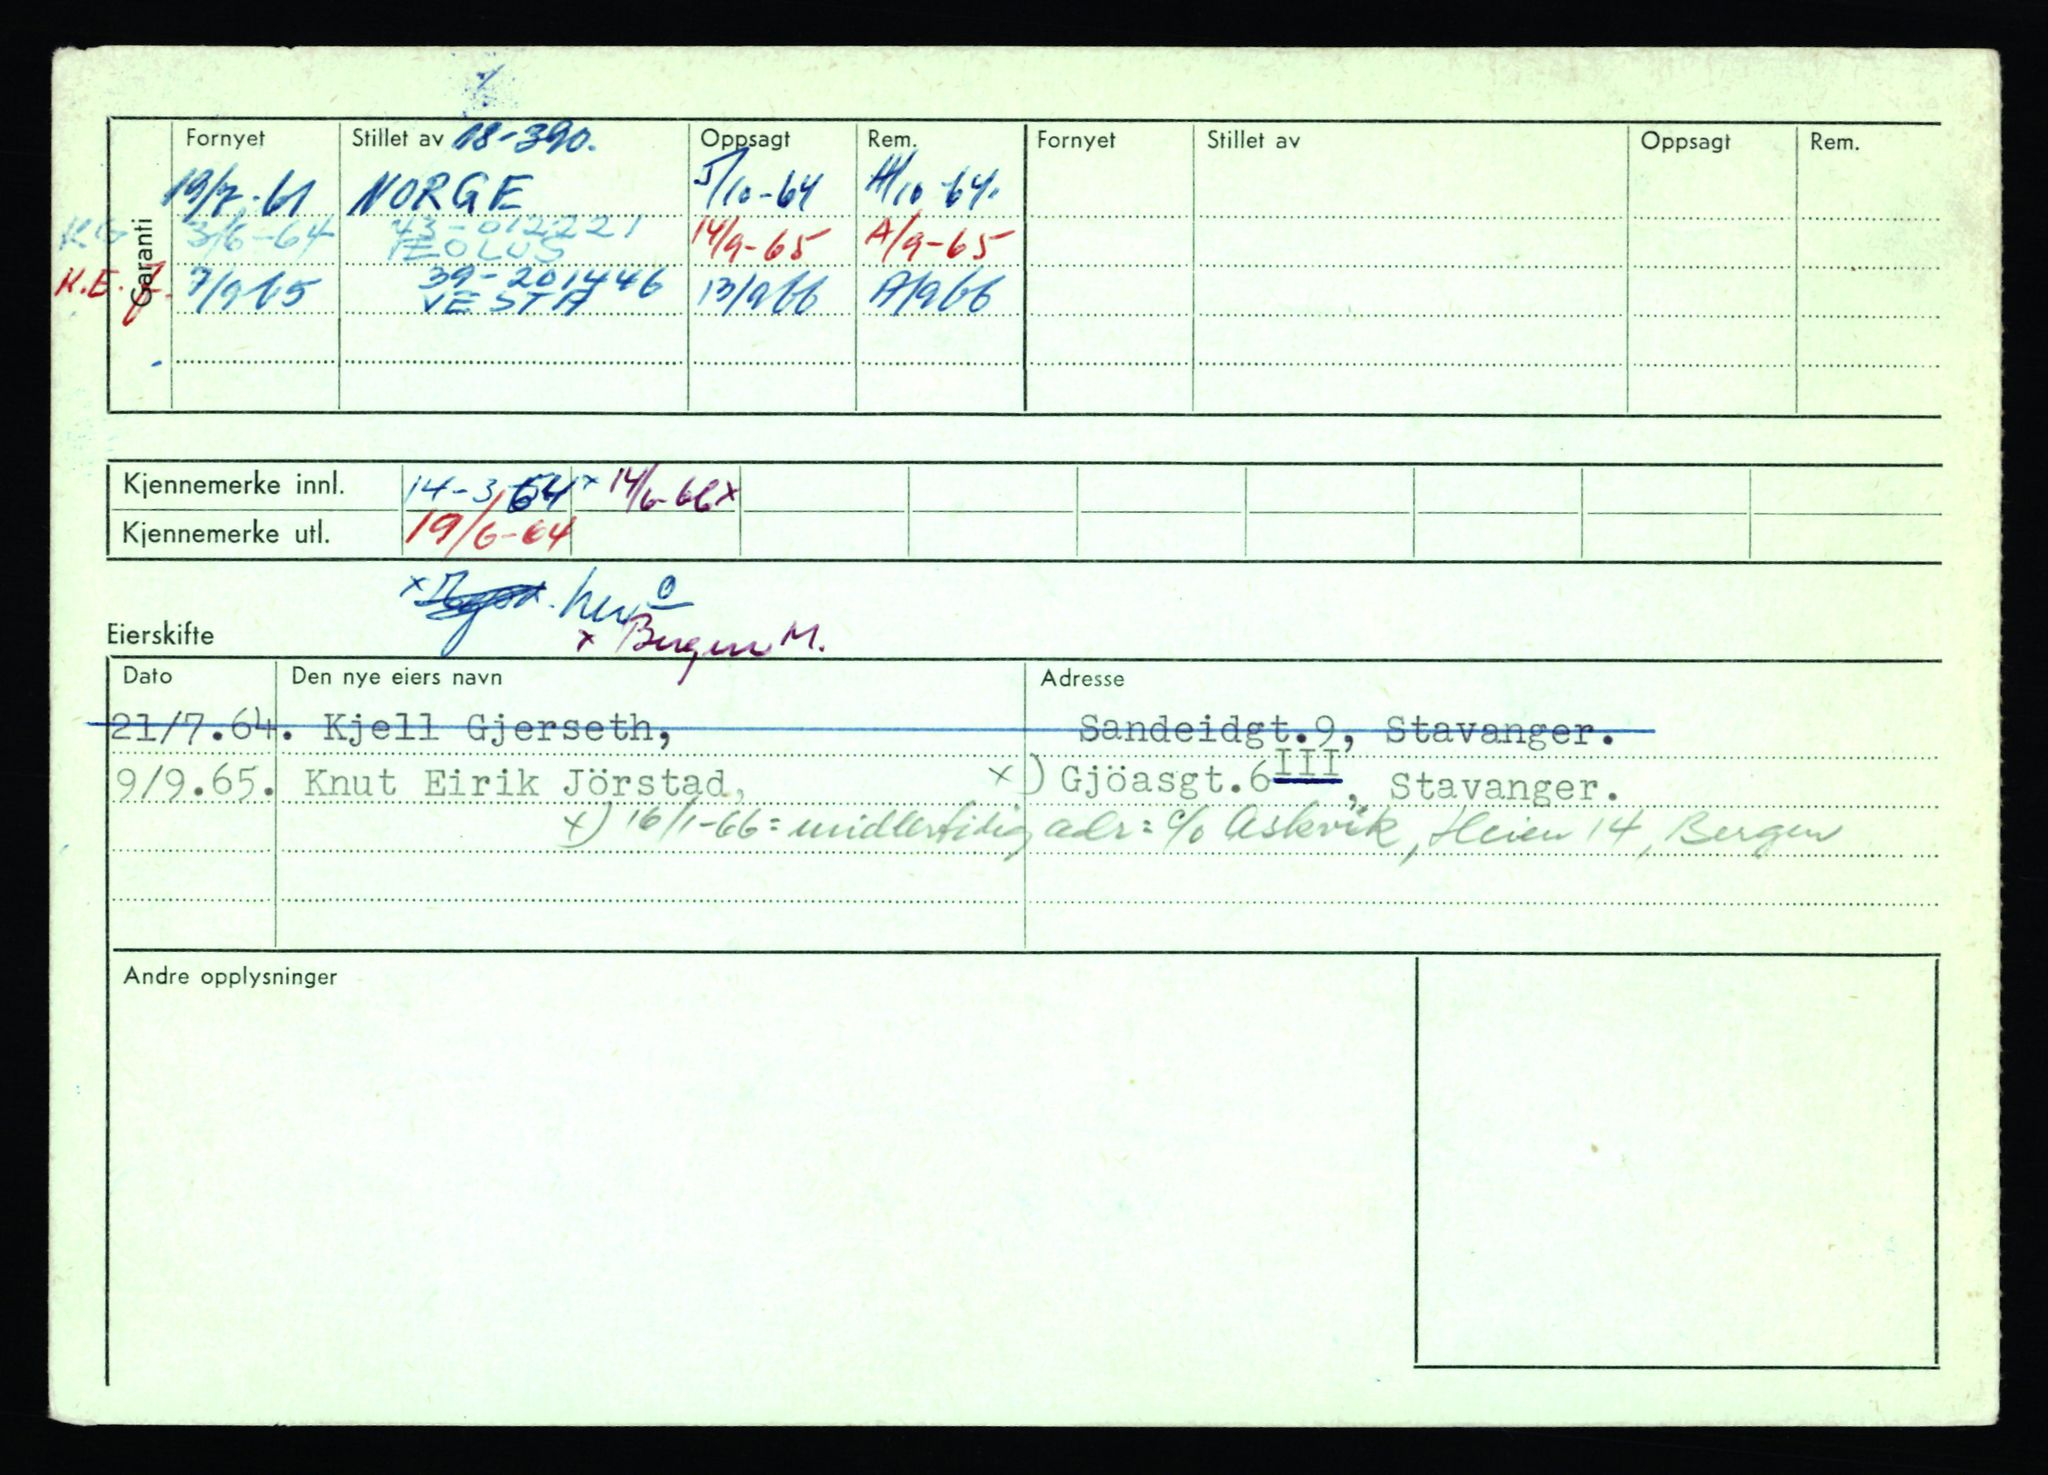 Garanti
Fornyet Stillet av 18-390. Oppsagt Rem. Fornyet Stillet av Oppsagt Rem.
19/7-61 NORGE /10-64 /10-64.
K.G 3/6-64 43-012221 ÆOLUS 14/9-65 A/9-65
K.E.J. 7/9 65 39-201446 VESTA 13/9 66 A/9 66
Kjennemerke innl. 14-3-64 x 14/6-66 x
Kjennemerke utl. 19/6-64
x her
x Bergen M.
Eierskifte
Dato Den nye eiers navn Adresse
21/7.64. Kjell Gjerseth, Sandeidgt.9, Stavanger.
9/9.65. Knut Eirik Jörstad, x) Gjöasgt.6 III, Stavanger.
x) 16/1-66 = midlertidig adr: c/o Askvik, Heien 14, Bergen
Andre opplysninger